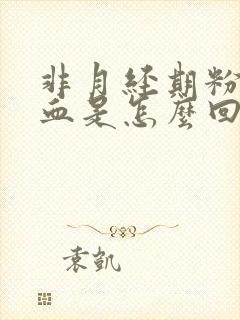 非月經期粉
血是怎麼回
袁凱